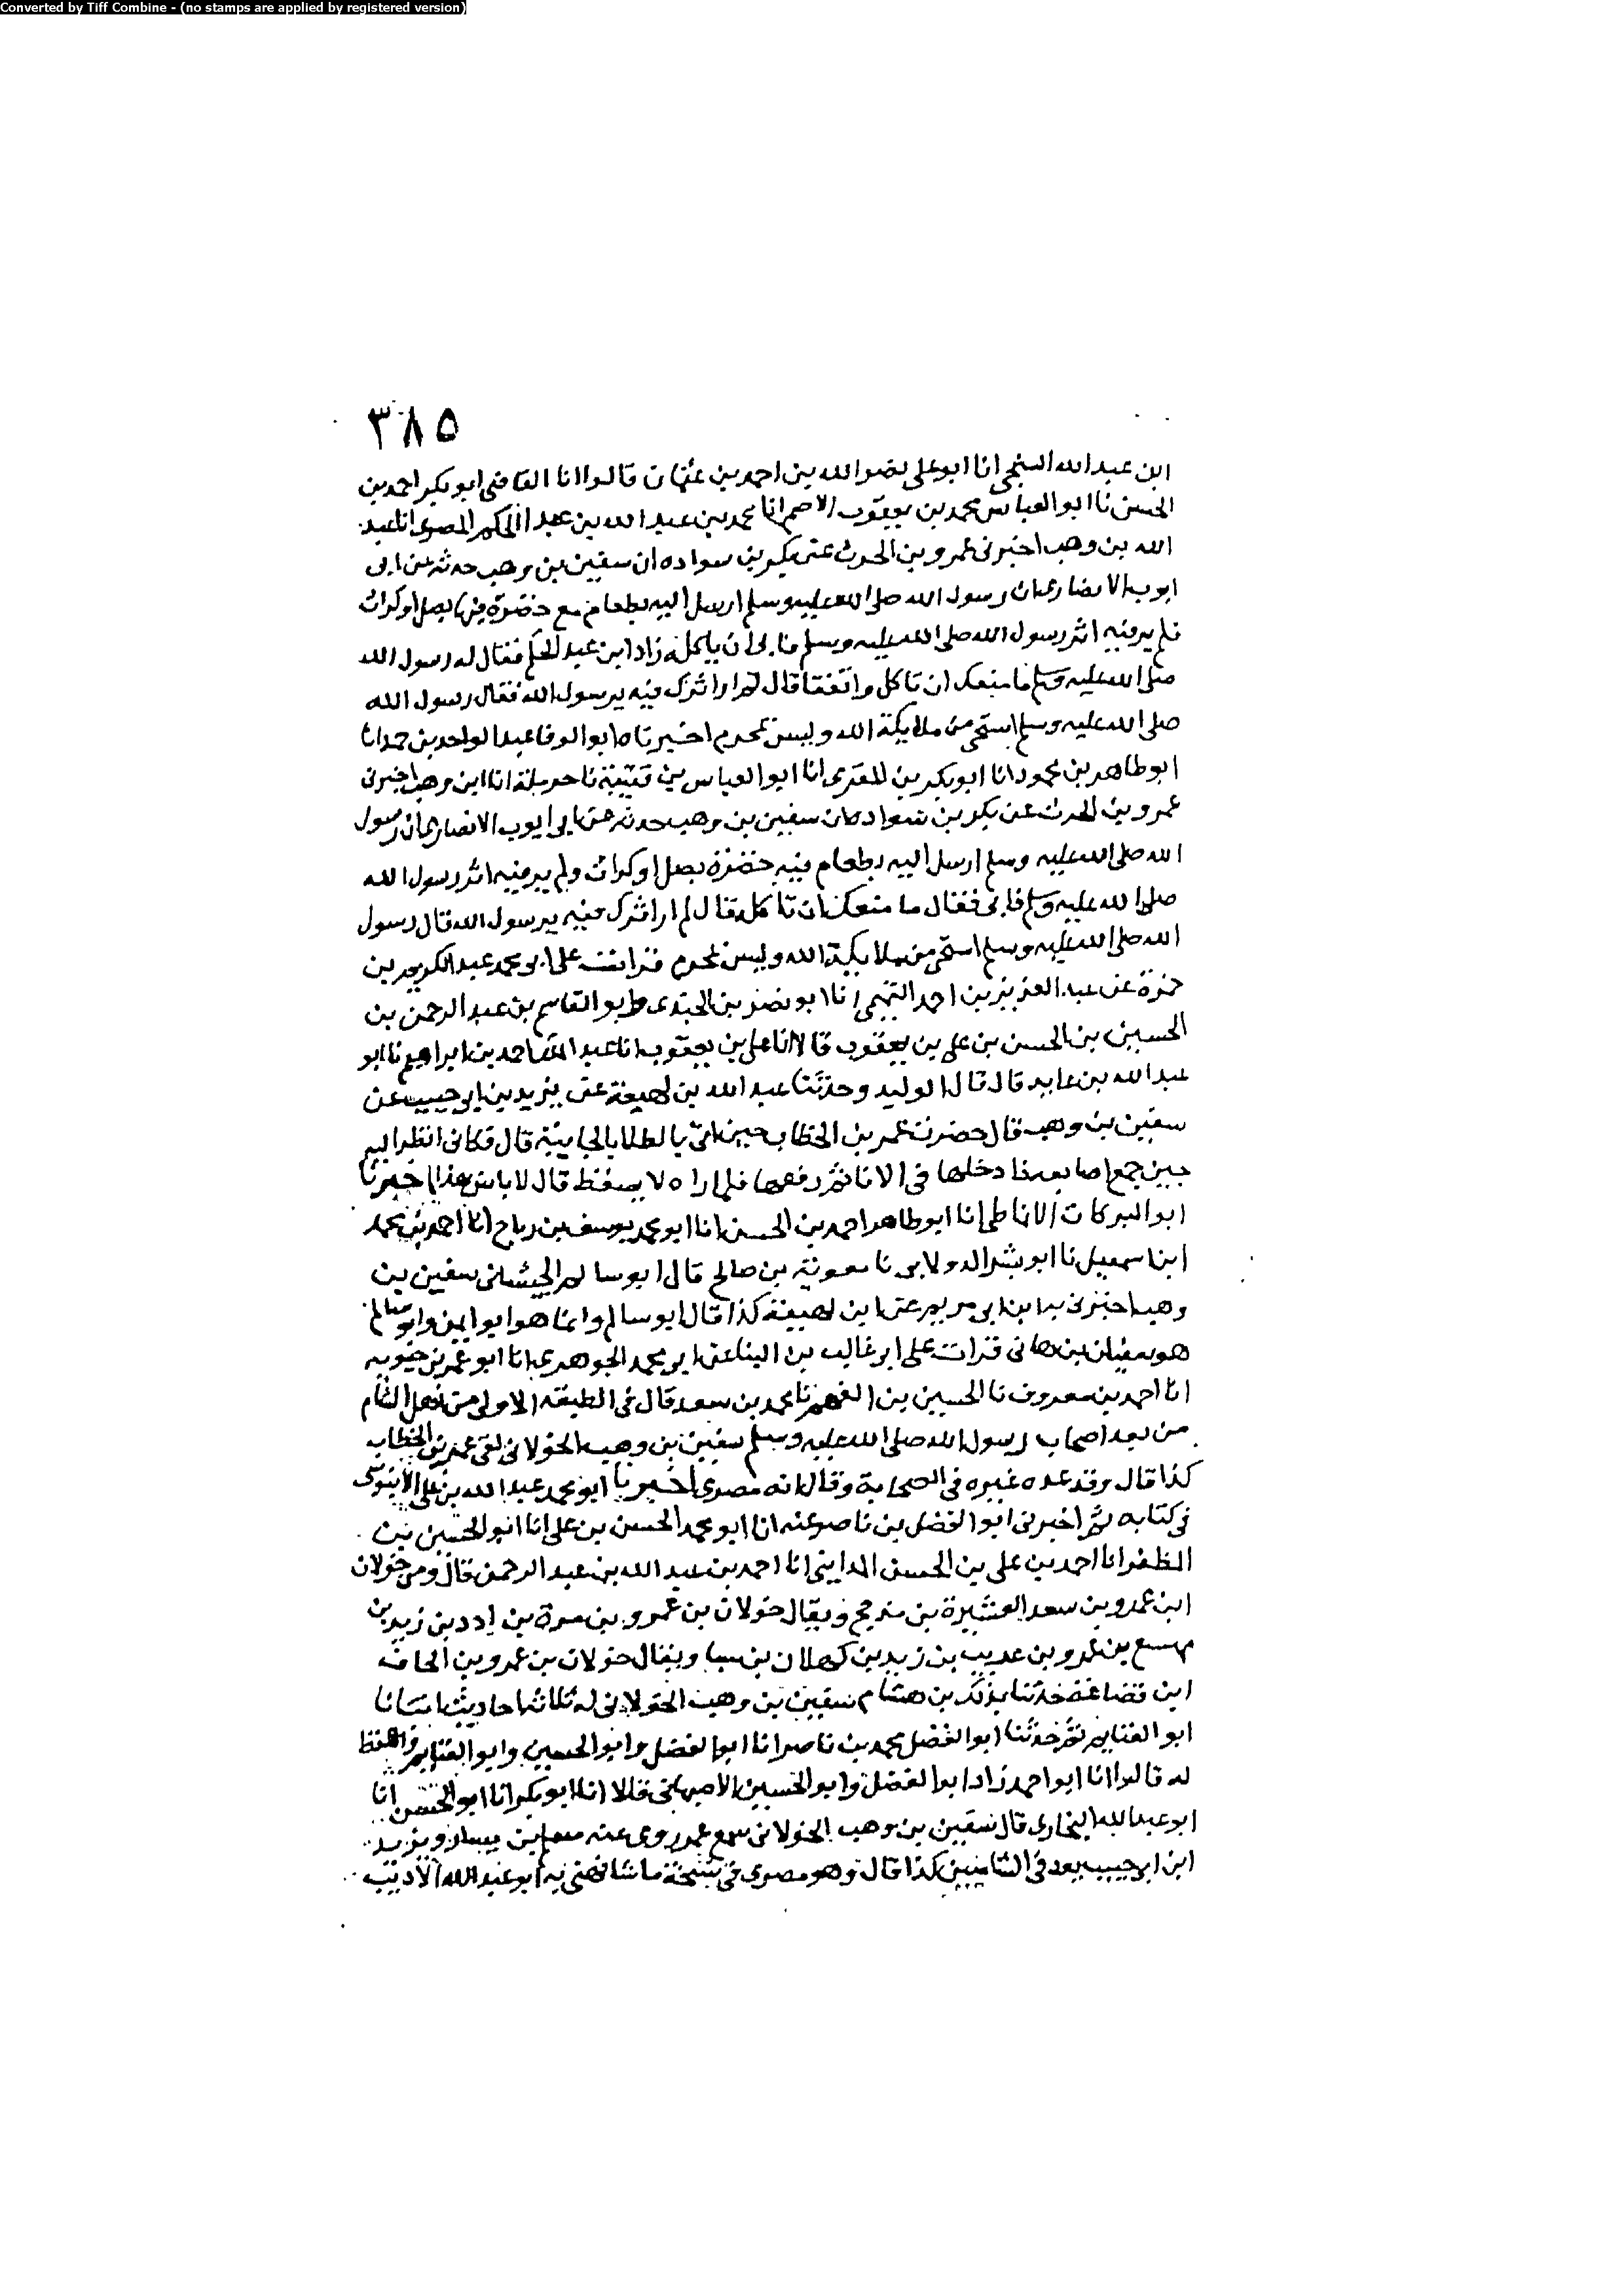 Converted by Tiff Combine - (no stamps are applied by registered version)
٣٨٥
ابن عبد الله السنجي انا ابو علي نصر الله بن احمد بن عثمان قالوا انا القاضي ابو بكر احمد بن
الحسن نا ابو العباس محمد بن يعقوب الاصم انا محمد بن عبد الله بن عبد الحكم المصري انا عبد
الله بن وهب اخبرني عمرو بن الحرث عن بكر بن سواده ان سفين بن وهب حدثه عن ابي
ايوب الانصاري ان رسول الله صلى الله عليه وسلم ارسل اليه بطعام مع خضرة فيها بصل او كراث
فلم ير فيه اثر رسول الله صلى الله عليه وسلم فابى ان ياكله زاد ابن عبد الحكم فقال له رسول الله
صلى الله عليه وسلم ما منعك ان تاكل واتفقا قال لم ار اثرك فيه يرسول الله فقال رسول الله
صلى الله عليه وسلم استحي من ملايكة الله وليس بمحرم اخبرتاه ابو الوفا عبد الواحد بن حمد انا
ابو طاهر بن محمود انا ابو بكر بن المقري انا ابو العباس بن قتيبة نا حرملة انا ابن وهب اخبرني
عمرو بن الحرث عن بكر بن سوادة ان سفين بن وهب حدثه عن ابي ايوب الانصاري ان رسول
الله صلى الله عليه وسلم ارسل اليه بطعام فيه خضرة بصل او كراث ولم ير فيه اثر رسول الله
صلى الله عليه وسلم فابى فقال ما منعك ان تاكل قال لم ار اثرك فيه يرسول الله قال رسول
الله صلى الله عليه وسلم استحي من ملايكة الله وليس بمحرم قرات على ابو محمد عبد الكريم بن
حمزة عن عبد العزيز بن احمد التميمي انا ابو نصر بن الجندي وابو القاسم بن عبد الرحمن بن
الحسين بن الحسن بن علي بن يعقوب قالا انا علي بن يعقوب انا عبد الله احمد بن ابراهيم نا ابو
عبد الله بن عايد قال قال الوليد وحدثنا عبد الله بن لهيعة عن يزيد بن ابي حبيب عن
سفين بن وهب قال حضرت عمر بن الخطاب حين اتي بالطلا بالجابية قال فكاني انظر اليه
حين جمع اصابعه فادخلها في الانا ثم رفعها فلما راه لا يصفط قال لا باس بهذا اخبرنا
ابو البركات الانماطي انا ابو طاهر احمد بن الحسن انا ابو محمد يوسف بن رباح انا احمد بن محمد
ابن اسمعيل نا ابو بشر الدولابي نا معوية بن صالح قال ابو سالم الجيشاني سفين بن
وهب اخبرني بها ابن ابي مريم عن ابن لهيعة كذا قال ابو سالم وانما هو ابو ايمن وابو سالم
هو سفيان بن هاني قرات على ابو غالب بن البنا عن ابي محمد الجوهري انا ابو عمر بن حيويه
انا احمد بن معروف نا الحسين بن الفهم نا محمد بن سعد قال في الطبقة الاولى من اهل الشام
من بعد اصحاب رسول الله صلى الله عليه وسلم سفين بن وهب الخولاني لقي عمر بن الخطاب
كذا قال وقد عده غيره في الصحابة وقال انه مصري اخبرنا ابو محمد عبد الله بن علي الابنوسي
في كتابه ثم اخبرني ابو الفضل بن ناصر عنه انا ابو محمد الحسن بن علي انا ابو الحسين بن
المظفر انا احمد بن علي بن الحسن المدايني انا احمد بن عبد الله بن عبد الرحمن قال ومن خولان
ابن عمرو بن سعد العشيرة بن مذحج ويقال خولان بن عمرو بن مرة بن ادد بن زيد بن
مهسع بن عمرو بن عريب بن زيد بن كهلان بن سبا ويقال خولان بن عمرو بن الحاف
ابن قضاعة حدثنا بذلك بن هشام سفين بن وهب الخولاني له ثلاثة احاديث انبانا
ابو الغنايم ثم حدثنا ابو الفضل محمد بن ناصر انا ابو الفضل وابو الحسين وابو الغنايم واللفظ
له قالوا انا ابو احمد زاد ابو الفضل وابو الحسين الاصبهاني قالا انا ابو بكر انا ابو الحسن انا
ابو عبد الله البخاري قال سفين بن وهب الخولاني سمع عمر روى عنه مسلم بن يسار ويزيد
ابن ابي حبيب يعد في الشاميين كذا قال وهو مصري في نسخة ما شافهني به ابو عبد الله الاديب